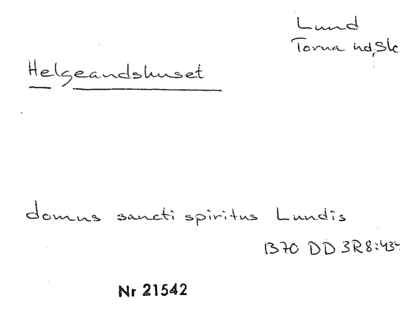 Lund
Torna hd, Sk
Helgeandshuset
domus sancti spiritus Lundis
1370 DD 3R8:434
Nr 21542